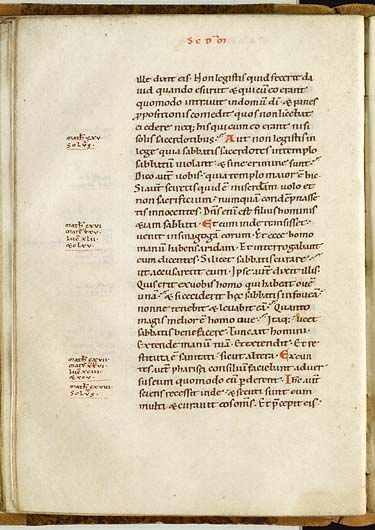 SCDM
ille dixit eis. Non legistis quid fecerit da
uid quando esuriit & qui cu eo erant
quomodo intrauit in domu di & panes
ppositionis comedit quos non licebat
ei edere neq; his qui cum eo erant nisi
solis sacerdotibus. Aut non legistis in
lege quia sabbatis sacerdotes in templo
sabbatum uiolant & sine crimine sunt.
Dico aut uobis. quia templo maior e hic.
Si aut sciretis quid e misericdiam uolo et
non sacrificium. numquam condepnasse
tis innocentes. Dns eni est filius hominis
& iam sabbati. Et cum inde transisset.
uenit in sinagogam eorum. Et ecce homo
manum habens aridam. Et interrogabant
eum dicentes. Si licet sabbatis curare.
ut accusarent eum. Ipse aut dixit illis.
Quis erit ex uobis homo qui habeat oue
una. & si ceciderit hec sabbatis in fouea.
nonne tenebit & leuabit ea. Quanto
magis melior e homo oue. Itaq; licet
sabbatis benefacere. Tunc ait homini.
Extende manu tua. Et extendit. Et re
stituta e sanitati sicut altera. Exeun
tes aut pharisei consiliu faciebant aduer
sus eum quomodo eu pderent. Ihc aut
sciens recessit inde. & secuti sunt eum
multi & curauit eos oms. Et pcepit eis.
math cxv
solus
math cxvi
marc xxv
luc xlii
math cxvii
math cxviii
solus